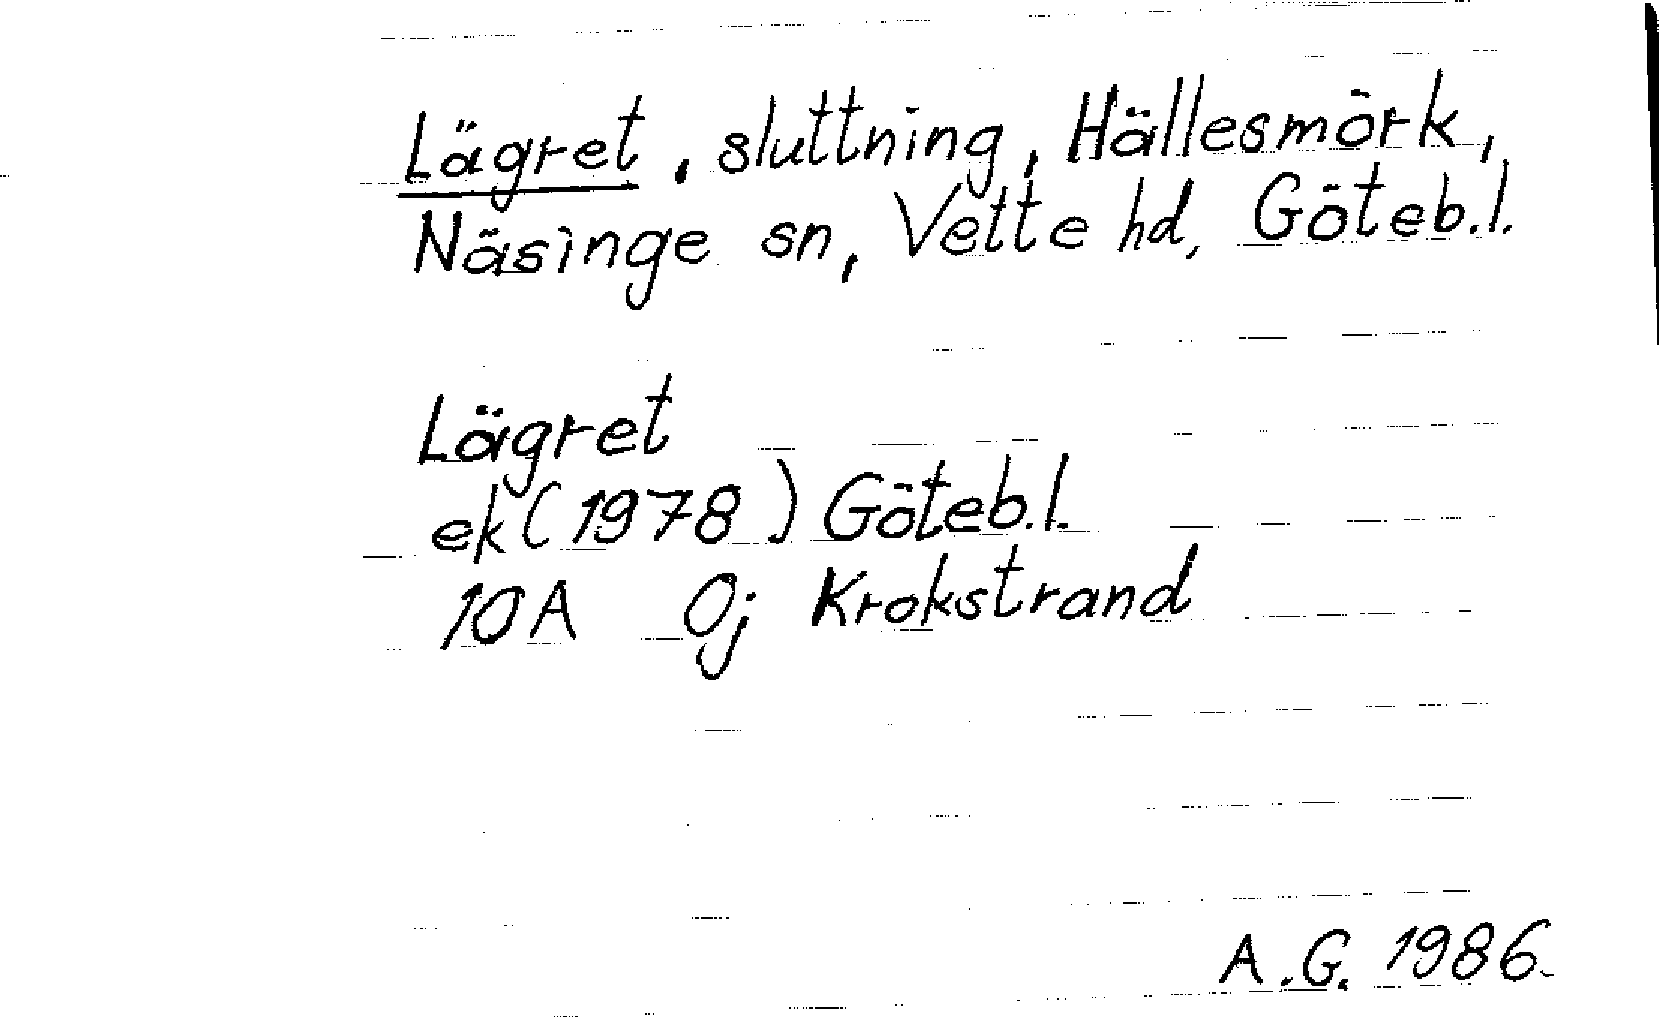 Lägret, sluttning, Hällesmörk,
Näsinge sn, Vette hd, Göteb.l.
Lägret
ek (1978) Göteb.l.
10A 0j Krokstrand
A.G. 1986